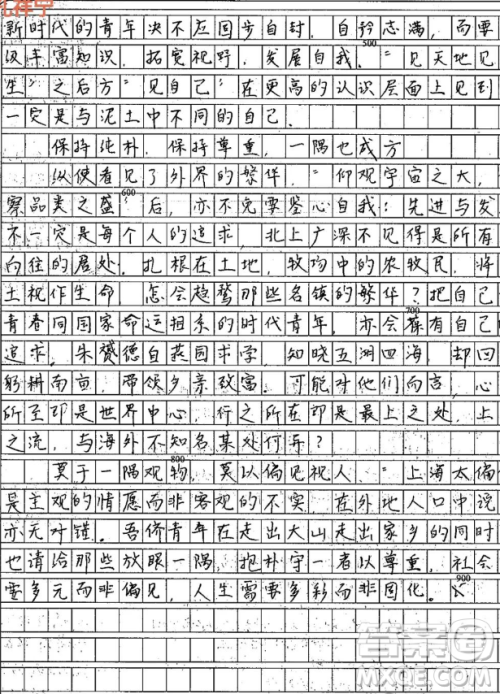 新时代的青年决不应固步自封，自矜志满，而要
汲丰富知识，拓宽视野，发展自我。"见天地见
500
生"之后方"见自己"在更高的认识层面上见到
一定是与泥土中不同的自己．
保持纯朴，保持尊重，一隅也成方
纵使看见了外界的繁华，"仰观宇宙之大，
察品类之盛"后，亦不免要鉴心自我：先进与发
600
不一定是每个人的追求，北上广深不见得是所有
向往的居处。扎根在土地，牧场中的农牧民，将
土视作生命，怎会趋鹜那些名镇的繁华？把自己
青春同国家命运相系的时代青年，亦会有自己
700
追求。朱赟德自燕园求学，知晓五湖四海，却回
躬耕南亩，带领乡亲致富。可能对他们而言，心
所至即是世界中心，行之所在即是最上之处，上
之流，与海外不知名某处何异？
莫于一隅观物，莫以偏见视人。"上海太偏
800
是主观的情愿而非客观的不实，在外地人口中说
亦无对错。吾侪青年在走出大山走出家乡的同时
也请给那些放眼一隅，抱朴守一者以尊重，社会
要多元而非偏见，人生需要多彩而非固化。
900
答案圈
MXQE.COM